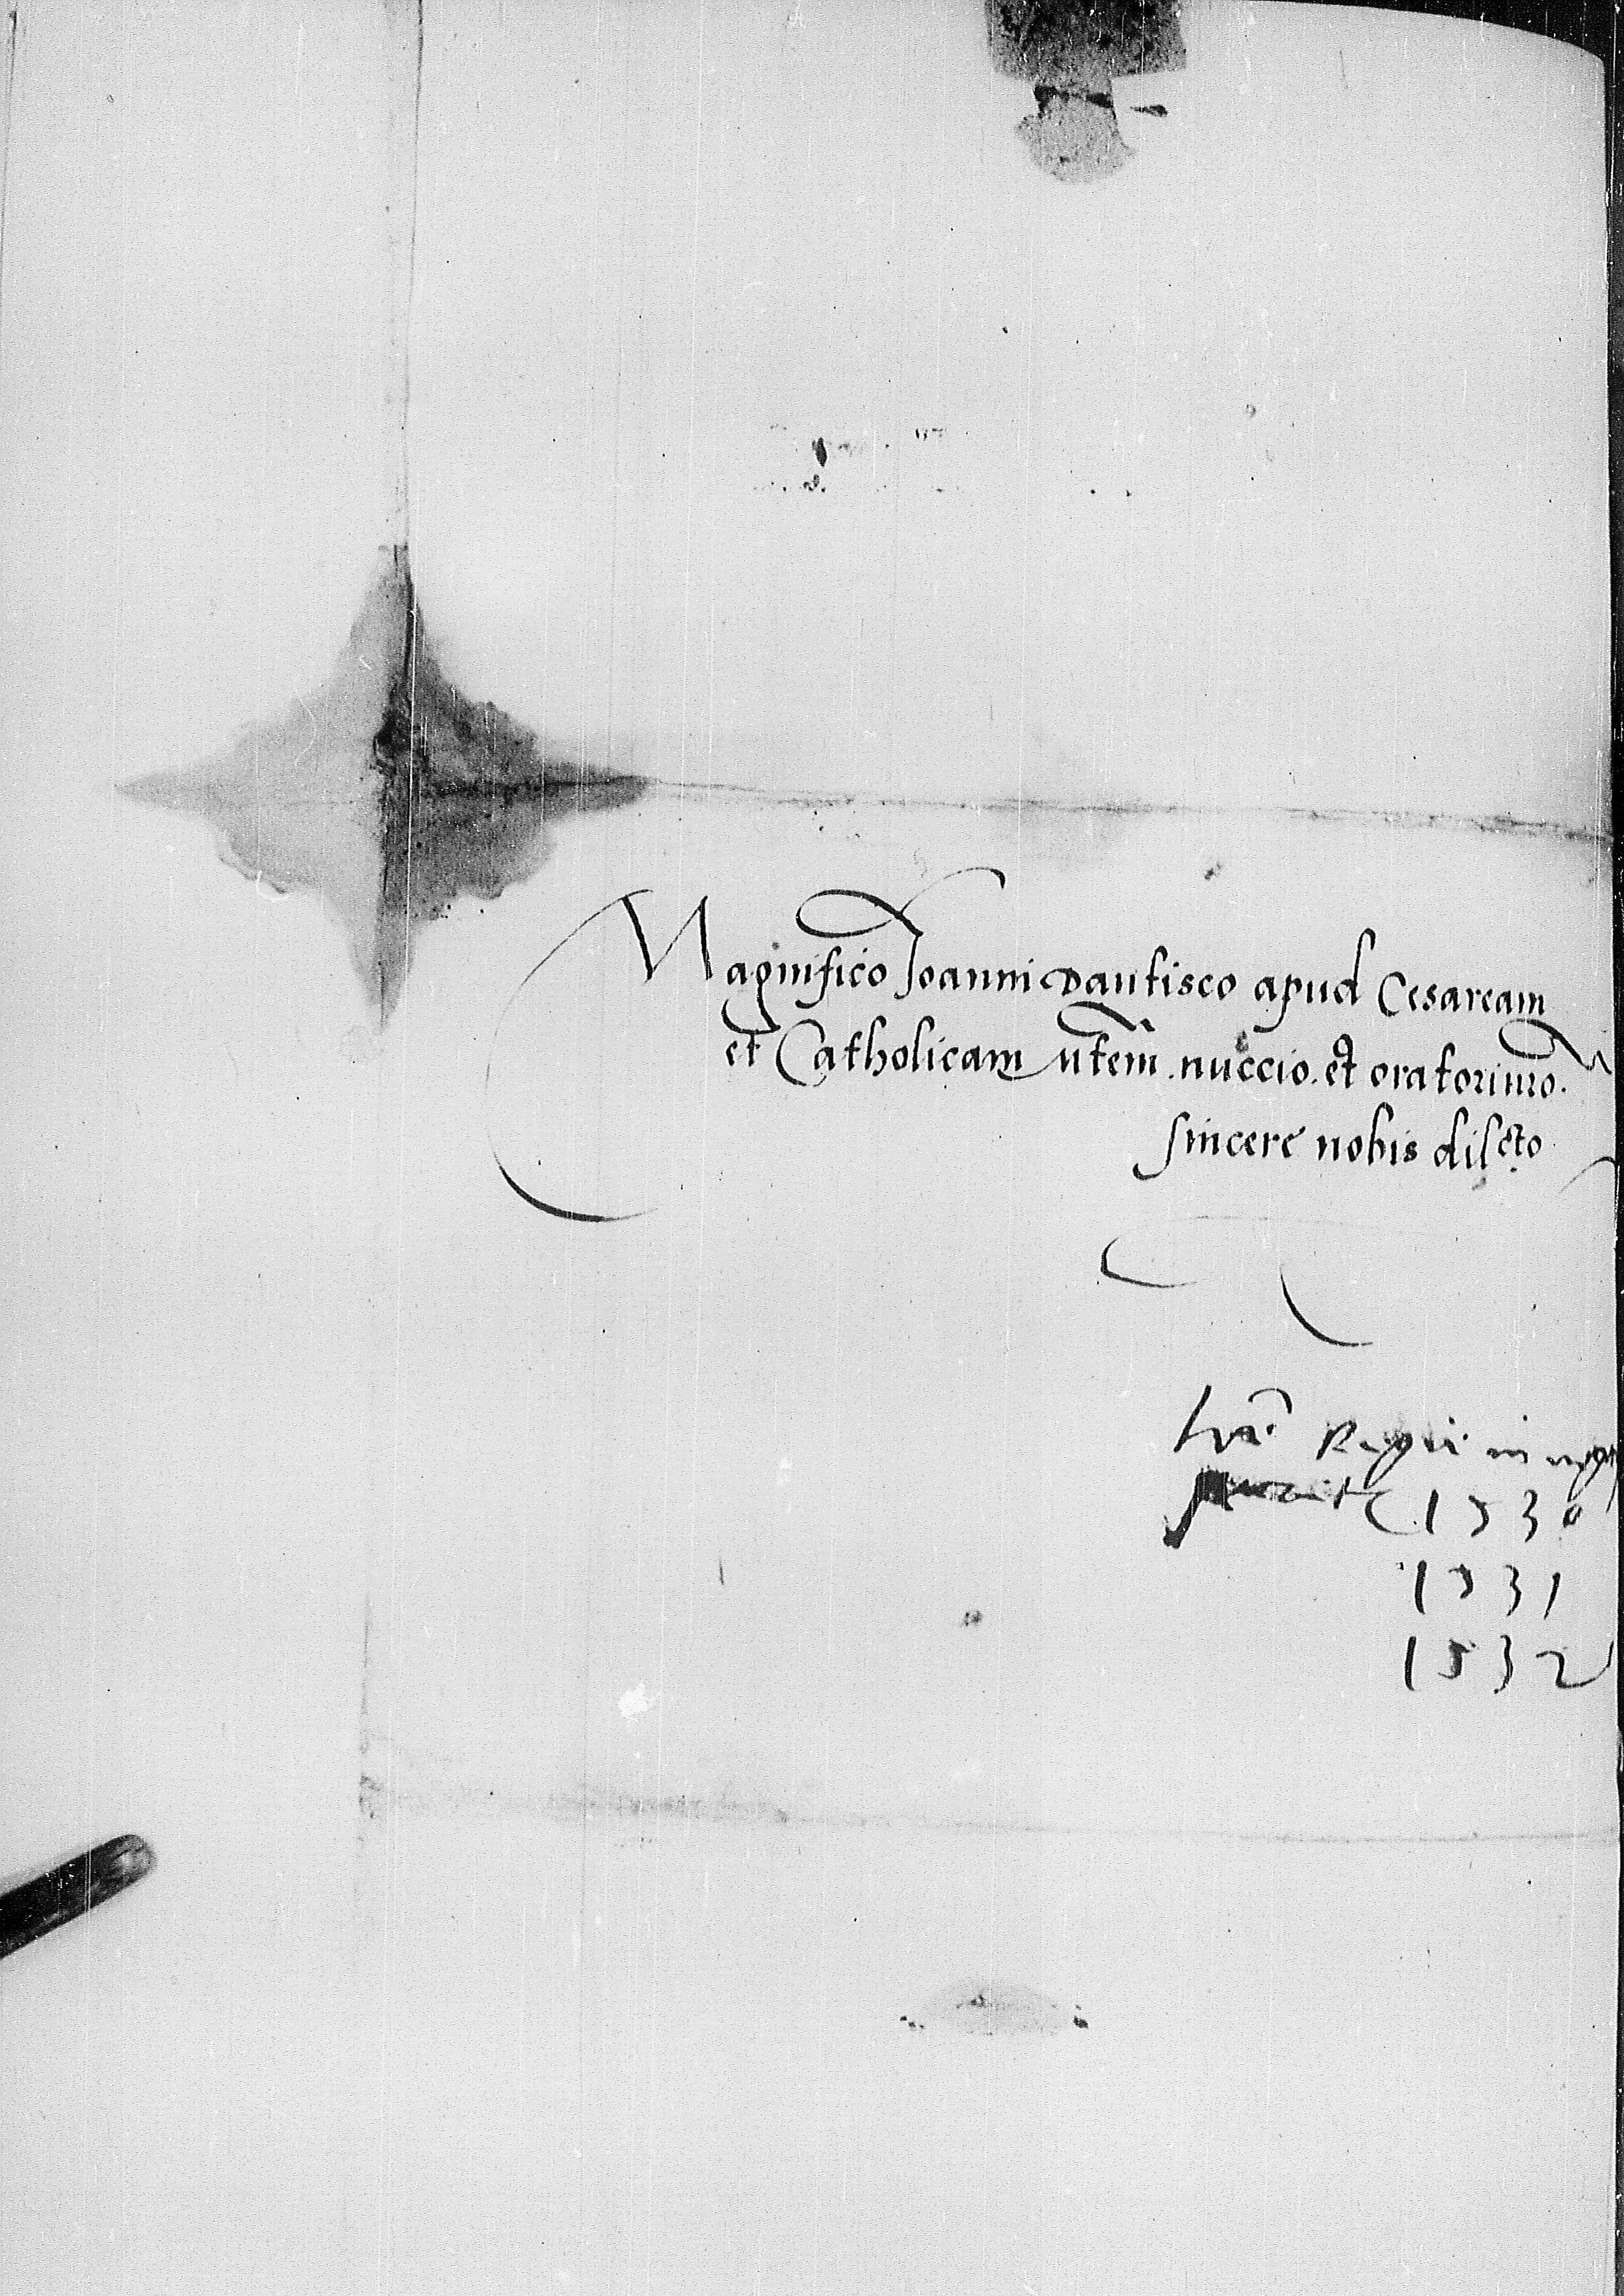 Magnifico Joanni Dantisco apud Cesaream
et Catholicam Mtem. nuccio. et oratori nro.
sincere nobis dilcto
Lrae Regii in
1530
1531
1532